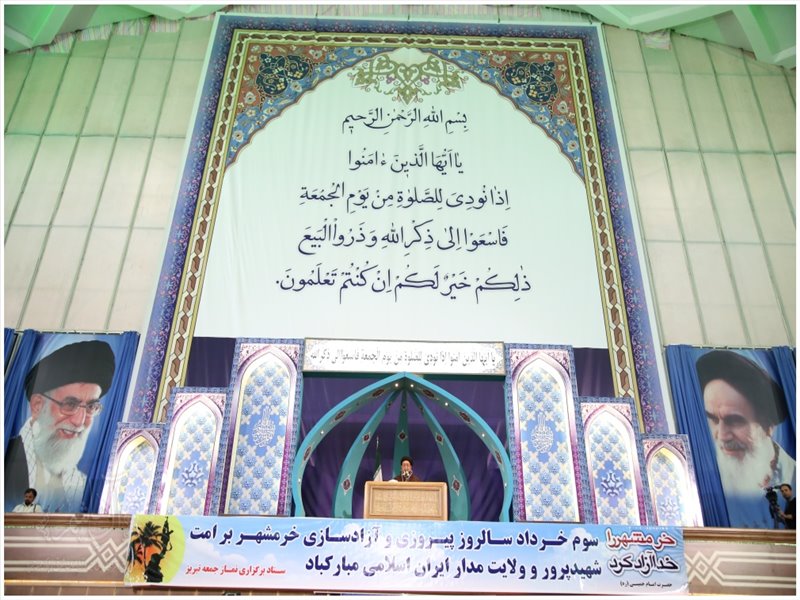 بِسْمِ اللهِ الرَّحْمٰنِ الرَّحِيمِ
يا اَيُّهَا الَّذينَ ءٰامَنُوا
اِذٰا نُودِىَ لِلصَّلٰوةِ مِنْ يَوْمِ الْجُمُعَةِ
فَاسْعَوْا اِلىٰ ذِكْرِ اللهِ وَ ذَرُوا الْبَيْعَ
ذٰلِكُمْ خَيْرٌ لَكُمْ اِنْ كُنْتُمْ تَعْلَمُونَ.
يا ايها الذين آمنوا اذا نودى للصلوة من يوم الجمعة فاسعوا الى ذكر الله
خرمشهر را
خدا آزاد کرد
حضرت امام خمینی (ره)
سوم خرداد سالروز پیروزی و آزادسازی خرمشهر بر امت
شهیدپرور و ولایت مدار ایران اسلامی مبارکباد
ستاد برگزاری نماز جمعه تبریز